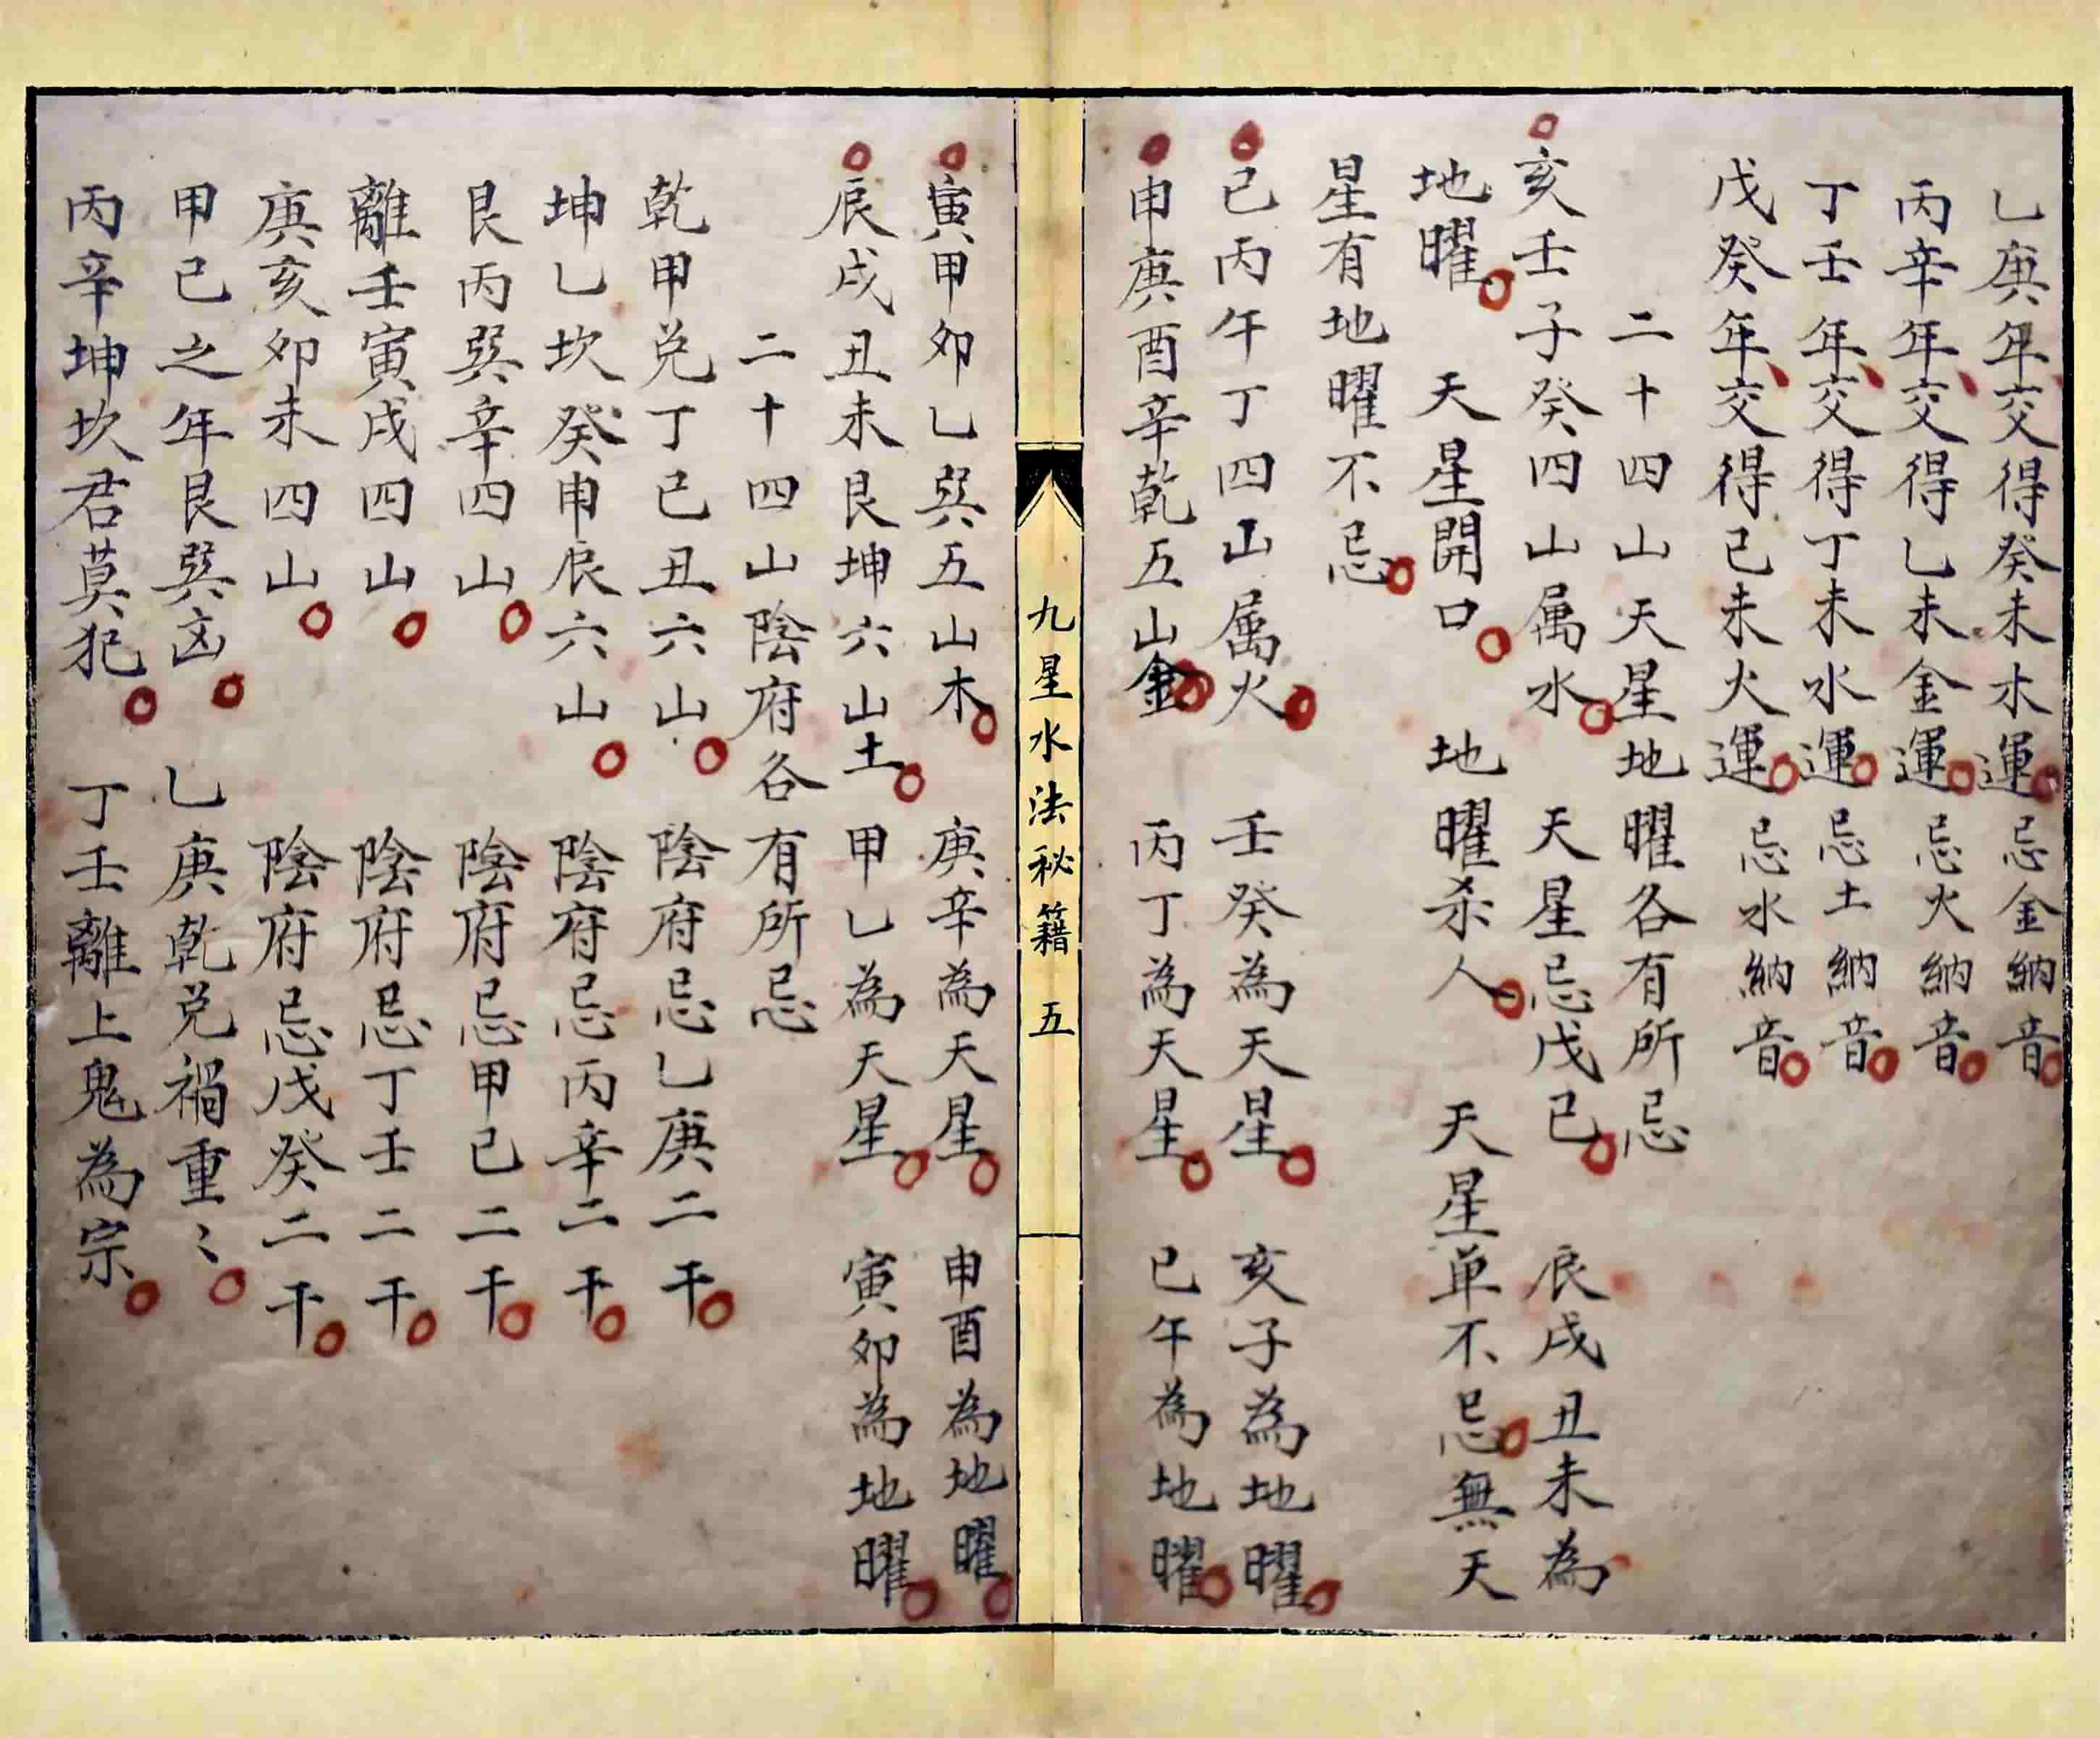 乙庚年交得癸未木運忌金納音
丙辛年交得乙未金運忌火納音
丁壬年交得丁未水運忌土納音
戊癸年交得己未火運忌水納音
二十四山天星地曜各有所忌
亥壬子癸四山属水 天星忌戊己 辰戌丑未為
地曜 天星開口 地曜杀人 天星单不忌無天
星有地曜不忌
巳丙午丁四山属火 壬癸為天星 亥子為地曜
申庚酉辛乾五山金 丙丁為天星 巳午為地曜
九星水法秘籍 五
寅甲卯乙巽五山木 庚辛為天星 申酉為地曜
辰戌丑未艮坤六山土 甲乙為天星 寅卯為地曜
二十四山陰府各有所忌
乾甲兌丁巳丑六山 陰府忌乙庚二干
坤乙坎癸申辰六山 陰府忌丙辛二干
艮丙巽辛四山 陰府忌甲己二干
離壬寅戌四山 陰府忌丁壬二干
庚亥卯未四山 陰府忌戊癸二干
甲己之年艮巽凶 乙庚乾兌禍重〻
丙辛坤坎君莫犯 丁壬離上鬼為宗